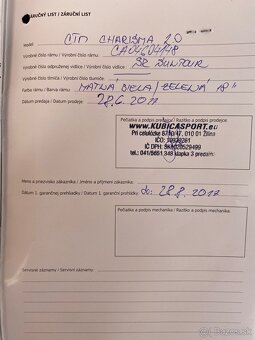 ZÁRUČNÝ LIST / ZÁRUČNÍ LIST
Model: CTM CHARISMA 2.0
Výrobné číslo rámu / Výrobní číslo rámu:
Výrobné číslo odpruženej vidlice / Výrobní číslo vidlice SR SUNTOUR
Výrobné číslo tlmiča / Výrobní číslo tlumiče:
Farba rámu / Barva rámu MATNÁ BIELA/ZELENÁ 18"
Dátum predaja / Datum prodeje 28.6.2017
Pečiatka a podpis predajcu / Razítko a podpis prodejce
www.KUBICASPORT.eu
Pri celulózke 010 01 Žilina
IČO:
IČ DPH:
tel.: 041/5651 348 klapka 3 predajňa
Meno a priezvisko zákazníka / Jméno a příjmení zákazníka:
Dátum 1. garančnej prehliadky / Datum 1. garanční prohlídky: do: 28.8.2017
Pečiatka a podpis mechanika / Razítko a podpis mechanika
Servisné záznamy / Servisní záznamy:
Bazos.sk